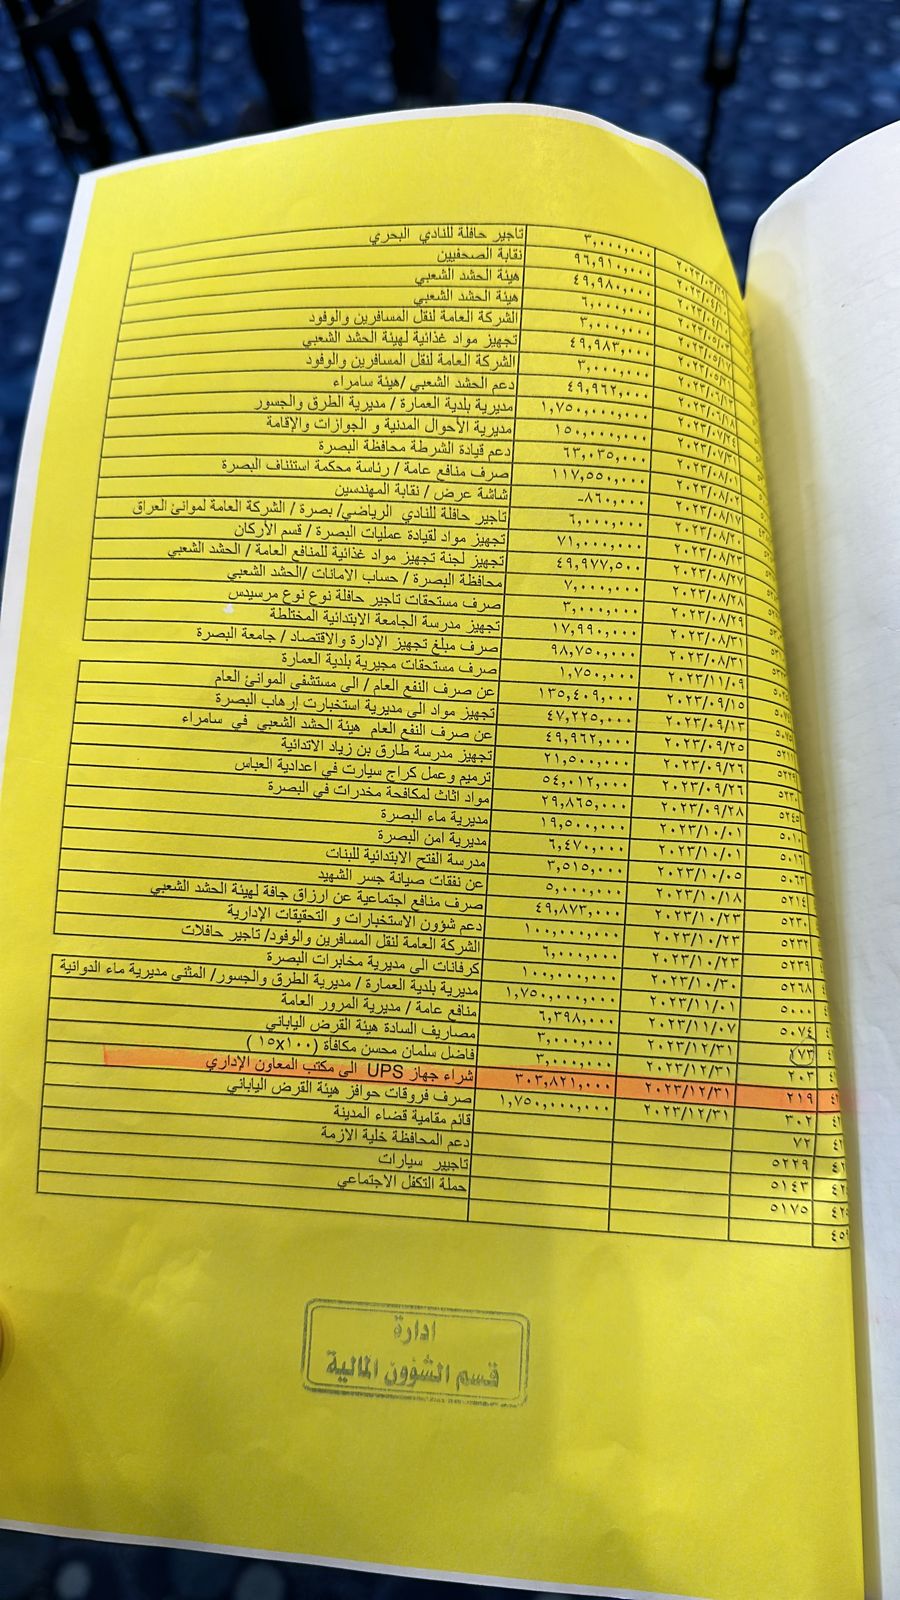 تاجير حافلة للنادي البحري ٣,٠٠٠,٠٠٠
نقابة الصحفيين ٩٦,٩١٠,٠٠٠
هيئة الحشد الشعبي ٤٩,٩٨٠,٠٠٠
هيئة الحشد الشعبي ٦,٠٠٠,٠٠٠
الشركة العامة لنقل المسافرين والوفود ٣,٠٠٠,٠٠٠
تجهيز مواد غذائية لهيئة الحشد الشعبي ٤٩,٩٨٣,٠٠٠
الشركة العامة لنقل المسافرين والوفود ٣,٠٠٠,٠٠٠
دعم الحشد الشعبي /هيئة سامراء ٤٩,٩٦٢,٠٠٠
٢٠٢٣/٠٧/٢٤ ١,٧٥٠,٠٠٠,٠٠٠ مديرية بلدية العمارة / مديرية الطرق والجسور
٢٠٢٣/٠٧/٣١ ١٥٠,٠٠٠,٠٠٠ مديرية الأحوال المدنية و الجوازات والإقامة
٢٠٢٣/٠٨/٠١ ٦٣,٠٣٥,٠٠٠ دعم قيادة الشرطة محافظة البصرة
٢٠٢٣/٠٨/٠٢ ١١٧,٥٥٠,٠٠٠ صرف منافع عامة / رئاسة محكمة استئناف البصرة
٢٠٢٣/٠٨/١٧ ٨٦٠,٠٠٠- شاشة عرض / نقابة المهندسين
٢٠٢٣/٠٨/٢٠ ٦,٠٠٠,٠٠٠ تاجير حافلة للنادي الرياضي/ بصرة / الشركة العامة لموانئ العراق
٢٠٢٣/٠٨/٢٣ ٧١,٠٠٠,٠٠٠ تجهيز مواد لقيادة عمليات البصرة / قسم الأركان
٢٠٢٣/٠٨/٢٧ ٤٩,٩٧٧,٥٠٠ تجهيز لجنة تجهيز مواد غذائية للمنافع العامة / الحشد الشعبي
٢٠٢٣/٠٨/٢٨ ٧,٠٠٠,٠٠٠ محافظة البصرة / حساب الامانات /الحشد الشعبي
٢٠٢٣/٠٨/٢٩ ٣,٠٠٠,٠٠٠ صرف مستحقات تاجير حافلة نوع نوع مرسيدس
٢٠٢٣/٠٨/٣١ ١٧,٩٩٠,٠٠٠ تجهيز مدرسة الجامعة الابتدائية المختلطة
٢٠٢٣/٠٨/٣١ ٩٨,٧٥٠,٠٠٠ صرف مبلغ تجهيز الإدارة والاقتصاد / جامعة البصرة
٢٠٢٣/١١/٠٩ ١,٧٥٠,٠٠٠ صرف مستحقات مجيرية بلدية العمارة
٢٠٢٣/٠٩/١٥ ١٣٥,٤٠٩,٠٠٠ عن صرف النفع العام / الى مستشفى الموانئ العام
٢٠٢٣/٠٩/١٣ ٤٧,٢٢٥,٠٠٠ تجهيز مواد الى مديرية استخبارت إرهاب البصرة
٢٠٢٣/٠٩/٢٥ ٤٩,٩٦٢,٠٠٠ عن صرف النفع العام هيئة الحشد الشعبي في سامراء
٥٢٢٩ ٢٠٢٣/٠٩/٢٦ ٢١,٥٠٠,٠٠٠ تجهيز مدرسة طارق بن زياد الاتدائية
٥٢٣٠ ٢٠٢٣/٠٩/٢٦ ٥٤,٠١٢,٠٠٠ ترميم وعمل كراج سيارت في اعدادية العباس
٥٢٤٥ ٢٠٢٣/٠٩/٢٨ ٢٩,٨٦٥,٠٠٠ مواد اثاث لمكافحة مخدرات في البصرة
٥٠١٠ ٢٠٢٣/١٠/٠١ ١٩,٥٠٠,٠٠٠ مديرية ماء البصرة
٥٠١٦ ٢٠٢٣/١٠/٠١ ٦,٤٧٠,٠٠٠ مديرية امن البصرة
٥٠٦٣ ٢٠٢٣/١٠/٠٥ ٣,٥١٥,٠٠٠ مدرسة الفتح الابتدائية للبنات
٥٢١٤ ٢٠٢٣/١٠/١٨ ٥,٠٠٠,٠٠٠ عن نفقات صيانة جسر الشهيد
٥٢٣٠ ٢٠٢٣/١٠/٢٣ ٤٩,٨٧٣,٠٠٠ صرف منافع اجتماعية عن ارزاق جافة لهيئة الحشد الشعبي
٥٢٣٢ ٢٠٢٣/١٠/٢٣ ١٠٠,٠٠٠,٠٠٠ دعم شؤون الاستخبارات و التحقيقات الإدارية
٥٢٣٩ ٢٠٢٣/١٠/٢٣ ٦,٠٠٠,٠٠٠ الشركة العامة لنقل المسافرين والوفود/ تاجير حافلات
٥٢٦٨ ٢٠٢٣/١٠/٣٠ ١٠٠,٠٠٠,٠٠٠ كرفانات الى مديرية مخابرات البصرة
٥٠٠٠ ٢٠٢٣/١١/٠١ ١,٧٥٠,٠٠٠,٠٠٠ مديرية بلدية العمارة / مديرية الطرق والجسور/ المثنى مديرية ماء الدوانية
٥٠٧٤ ٢٠٢٣/١١/٠٧ ٦,٣٩٨,٠٠٠ منافع عامة / مديرية المرور العامة
١٧٣ ٢٠٢٣/١٢/٣١ ٣,٠٠٠,٠٠٠ مصاريف السادة هيئة القرض الياباني
٢٠٣ ٢٠٢٣/١٢/٣١ ٣,٠٠٠,٠٠٠ فاضل سلمان محسن مكافأة (١٠٠x١٥)
٢١٩ ٢٠٢٣/١٢/٣١ ٣٠٣,٨٢١,٠٠٠ شراء جهاز UPS الى مكتب المعاون الإداري
٣٠٢ ٢٠٢٣/١٢/٣١ ١,٧٥٠,٠٠٠,٠٠٠ صرف فروقات حوافز هيئة القرض الياباني
٧٢ قائم مقامية قضاء المدينة
٥٢٢٩ دعم المحافظة خلية الازمة
٥١٤٣ تاجيير سيارات
٥١٧٥ حملة التكفل الاجتماعي
ادارة
قسم الشؤون المالية